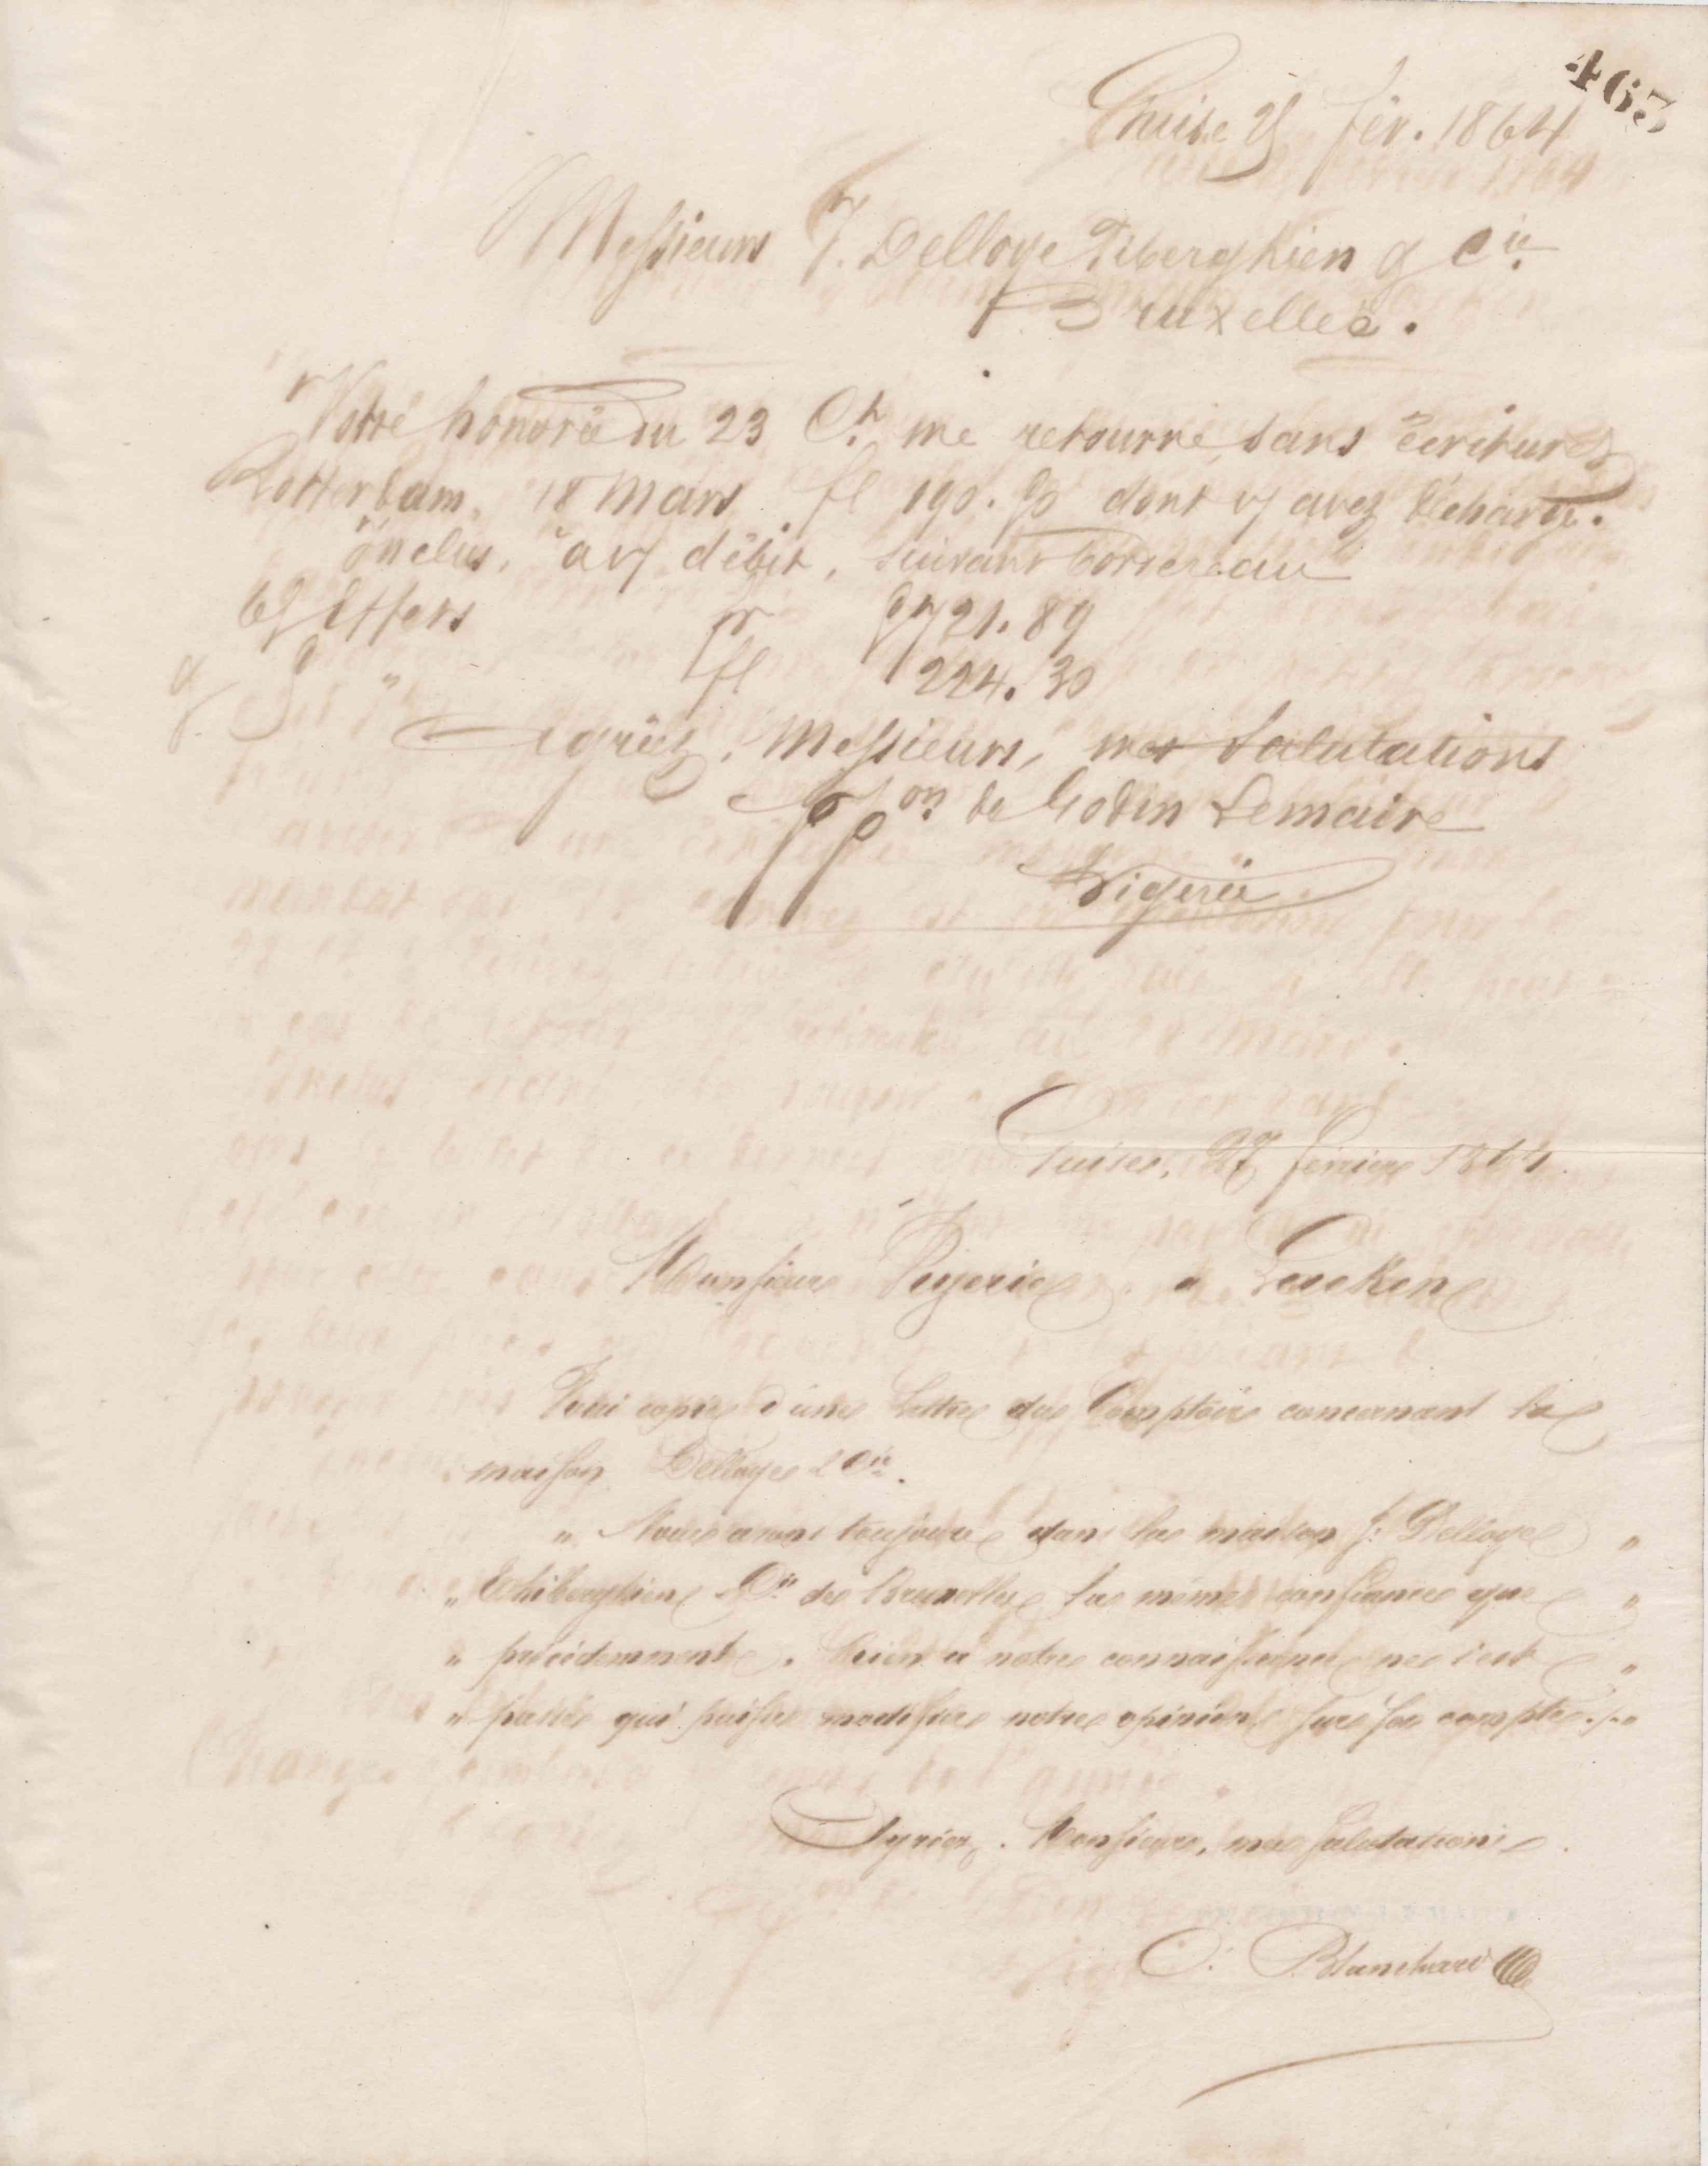 463
Guise 25 fév. 1864
Messieurs F. Delloye Tiberghien & Cie
Bruxelles.
Votre honorée du 23 Ct me retourne, sans écritures
Rotterdam, 18 Mars fl 190. dont v/ avez décharge.
Inclus, a v/ débit, suivant bordereau
Effets fr 21.89
& " fl 224.30
Agréez, Messieurs, mes salutations
pp on de Godin Lemaire
Rigerié
Guise, 27 février 1864.
Monsieur à Laeken
Voici copie d'une lettre du Comptoir concernant la
maison Delloye & Cie.
" Nous avons toujours dans la maison F. Delloye "
" Thiberghien & Cie de Bruxelles la même confiance que "
" précédemment. Rien à notre connaissance ne s'est "
" passé qui puisse modifier notre opinion sur son compte. "
Agréez, Monsieur, mes salutations.
Blanchard